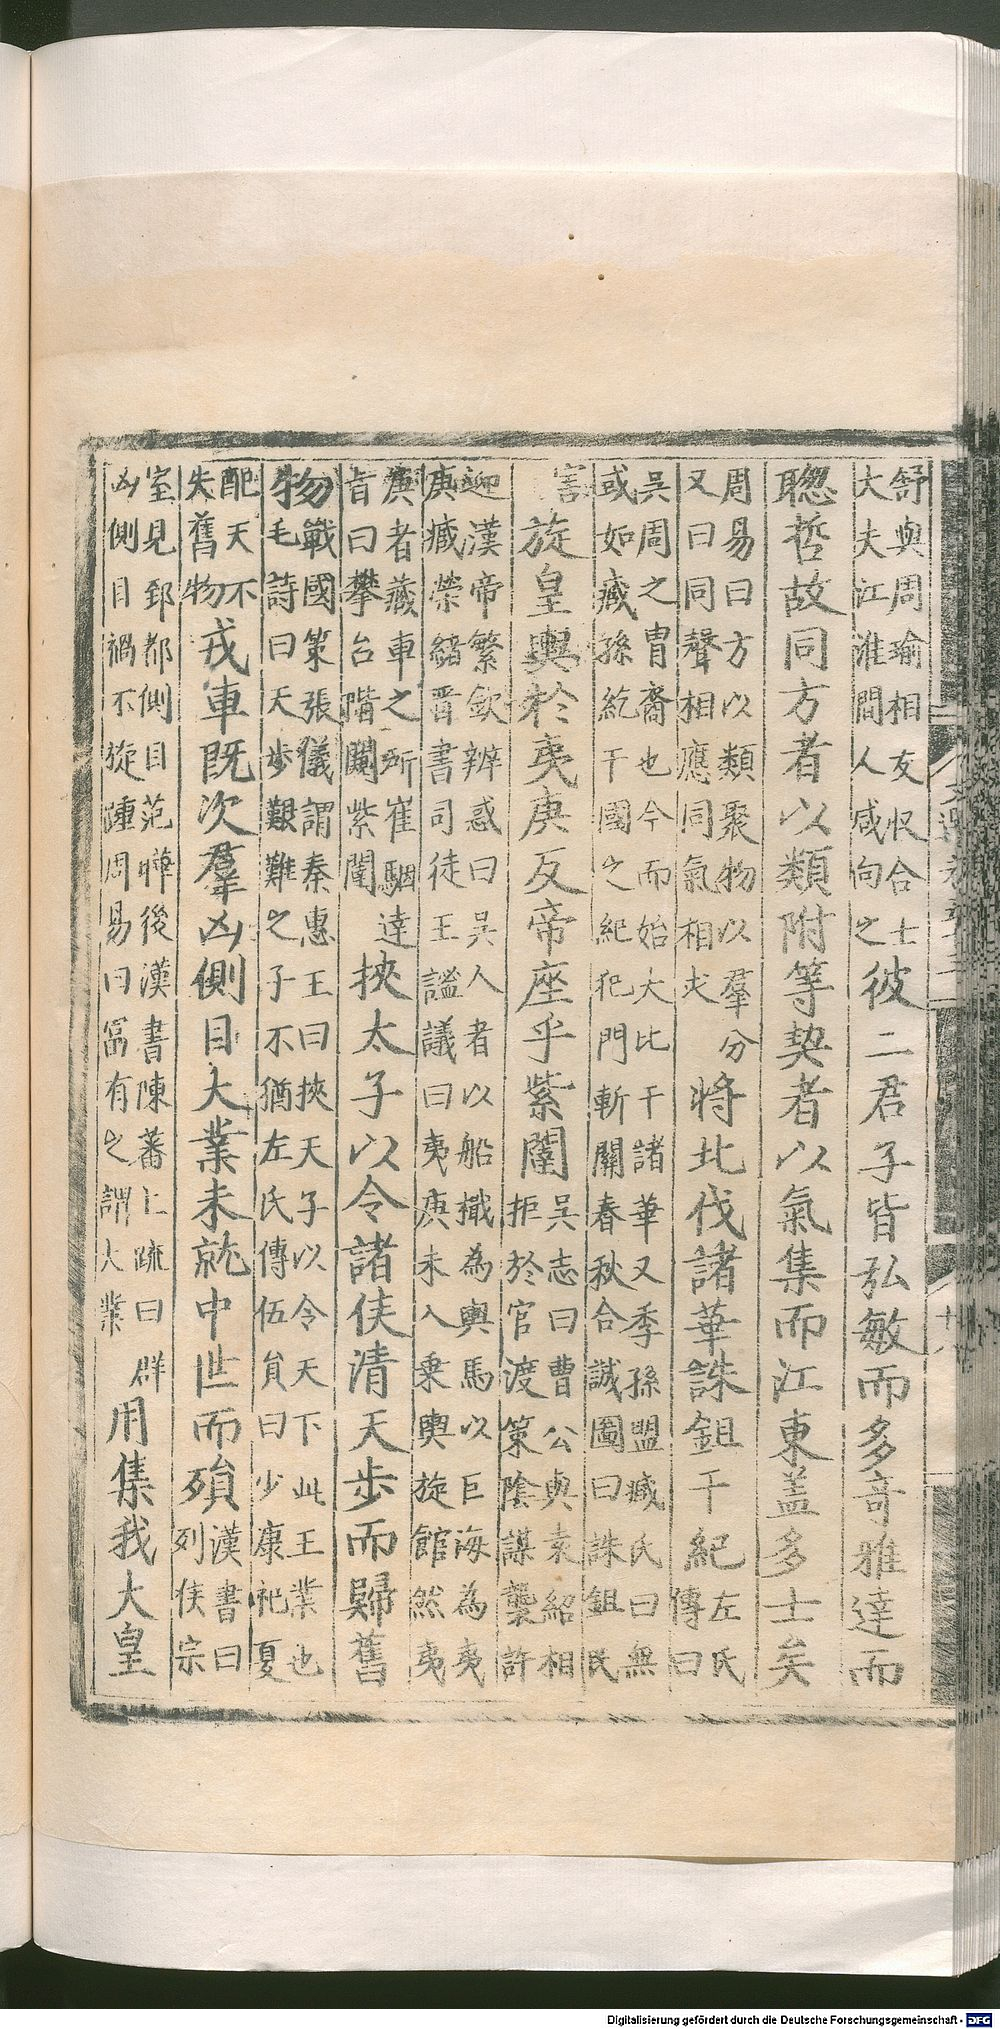 舒與周瑜相友収合士
大夫江淮間人咸向之彼二君子皆弘敏而多奇雅達而
聰哲故同方者以類附等契者以氣集而江東盖多士矣
周易曰方以類聚物以羣分
又曰同聲相應同氣相求將北伐諸華誅鉏干紀左氏
傳曰
吳周之胄裔也今而始大比于諸華又季孫盟臧氏曰無
或如臧孫紇干國之紀犯門斬關春秋合誠圖曰誅鉏民
害旋皇輿於夷庚反帝座乎紫闥吳志曰曹公與袁紹相
拒於官渡策陰謀襲許
迎漢帝繁欽辨惑曰吳人者以船檝為輿馬以巨海為夷
庚臧榮緒晉書司徒王謐議曰夷庚未入乗輿旋館然夷
庚者藏車之所崔駰達
旨曰攀台階闚紫闥挾太子以令諸侯清天步而歸舊
物戰國策張儀謂秦惠王曰挾天子以令天下此王業也
毛詩曰天步艱難之子不猶左氏傳伍員曰少康祀夏
配天不
失舊物戎車既次羣凶側目大業未就中世而殞漢書曰
列侯宗
室見郅都側目范曄後漢書陳蕃上疏曰群
凶側目禍不旋踵周易曰富有之謂大業用集我大皇
Digitalisierung gefördert durch die Deutsche Forschungsgemeinschaft - DFG